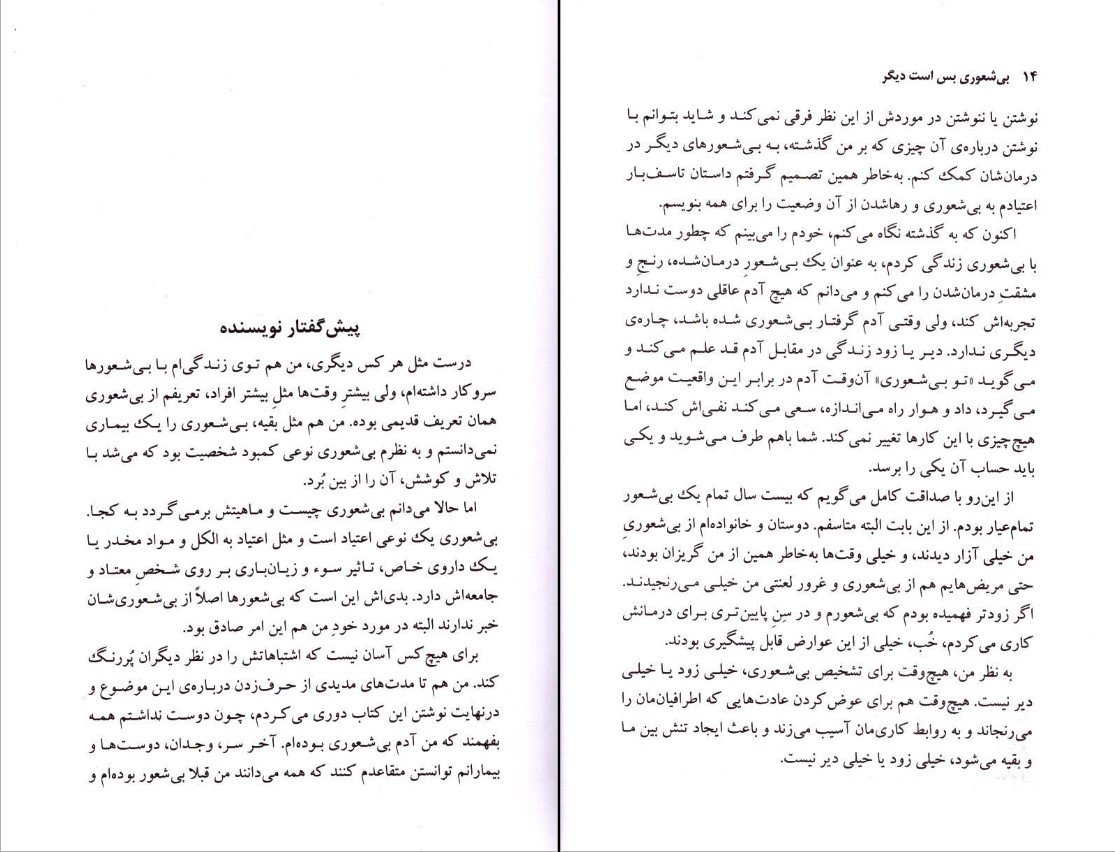 پیش‌گفتار نویسنده
درست مثل هر کس دیگری، من هم توی زندگی‌ام با بی‌شعورها
سروکار داشته‌ام، ولی بیشترِ وقت‌ها مثلِ بیشتر افراد، تعریفم از بی‌شعوری
همان تعریف قدیمی بوده. من هم مثل بقیه، بی‌شعوری را یک بیماری
نمی‌دانستم و به نظرم بی‌شعوری نوعی کمبود شخصیت بود که می‌شد با
تلاش و کوشش، آن را از بین بُرد.
اما حالا می‌دانم بی‌شعوری چیست و ماهیتش برمی‌گردد به کجا.
بی‌شعوری یک نوعی اعتیاد است و مثل اعتیاد به الکل و مواد مخدر یا
یک داروی خاص، تاثیر سوء و زیان‌باری بر روی شخصِ معتاد و
جامعه‌اش دارد. بدی‌اش این است که بی‌شعورها اصلاً از بی‌شعوری‌شان
خبر ندارند البته در مورد خودِ من هم این امر صادق بود.
برای هیچ‌کس آسان نیست که اشتباهاتش را در نظر دیگران پُررنگ
کند. من هم تا مدت‌های مدیدی از حرف‌زدن درباره‌ی این موضوع و
درنهایت نوشتن این کتاب دوری می‌کردم، چون دوست نداشتم همه
بفهمند که من آدم بی‌شعوری بوده‌ام. آخر سر، وجدان، دوست‌ها و
بیمارانم توانستن متقاعدم کنند که همه می‌دانند من قبلا بی‌شعور بوده‌ام و
۱۴ بی‌شعوری بس است دیگر
نوشتن یا ننوشتن در موردش از این نظر فرقی نمی‌کند و شاید بتوانم با
نوشتن درباره‌ی آن چیزی که بر من گذشته، به بی‌شعورهای دیگر در
درمان‌شان کمک کنم. به‌خاطر همین تصمیم گرفتم داستان تاسف‌بار
اعتیادم به بی‌شعوری و رهاشدن از آن وضعیت را برای همه بنویسم.
اکنون که به گذشته نگاه می‌کنم، خودم را می‌بینم که چطور مدت‌ها
با بی‌شعوری زندگی کردم، به عنوان یک بی‌شعورِ درمان‌شده، رنجِ و
مشقتِ درمان‌شدن را می‌کنم و می‌دانم که هیچ آدم عاقلی دوست ندارد
تجربه‌اش کند، ولی وقتی آدم گرفتار بی‌شعوری شده باشد، چاره‌ی
دیگری ندارد. دیر یا زود زندگی در مقابل آدم قد علم می‌کند و
می‌گوید «تو بی‌شعوری» آن‌وقت آدم در برابر این واقعیت موضع
می‌گیرد، داد و هوار راه می‌اندازه، سعی می‌کند نفی‌اش کند، اما
هیچ‌چیزی با این کارها تغییر نمی‌کند. شما باهم طرف می‌شوید و یکی
باید حساب آن یکی را برسد.
از این‌رو با صداقت کامل می‌گویم که بیست سال تمام یک بی‌شعور
تمام‌عیار بودم. از این بابت البته متاسفم. دوستان و خانواده‌ام از بی‌شعوریِ
من خیلی آزار دیدند، و خیلی وقت‌ها به‌خاطر همین از من گریزان بودند،
حتی مریض‌هایم هم از بی‌شعوری و غرور لعنتی من خیلی می‌رنجیدند.
اگر زودتر فهمیده بودم که بی‌شعورم و در سنِ پایین‌تری برای درمانش
کاری می‌کردم، خُب، خیلی از این عوارض قابل پیشگیری بودند.
به نظر من، هیچ‌وقت برای تشخیص بی‌شعوری، خیلی زود یا خیلی
دیر نیست. هیچ‌وقت هم برای عوض‌کردن عادت‌هایی که اطرافیان‌مان را
می‌رنجاند و به روابط کاری‌مان آسیب می‌زند و باعث ایجاد تنش بین ما
و بقیه می‌شود، خیلی زود یا خیلی دیر نیست.